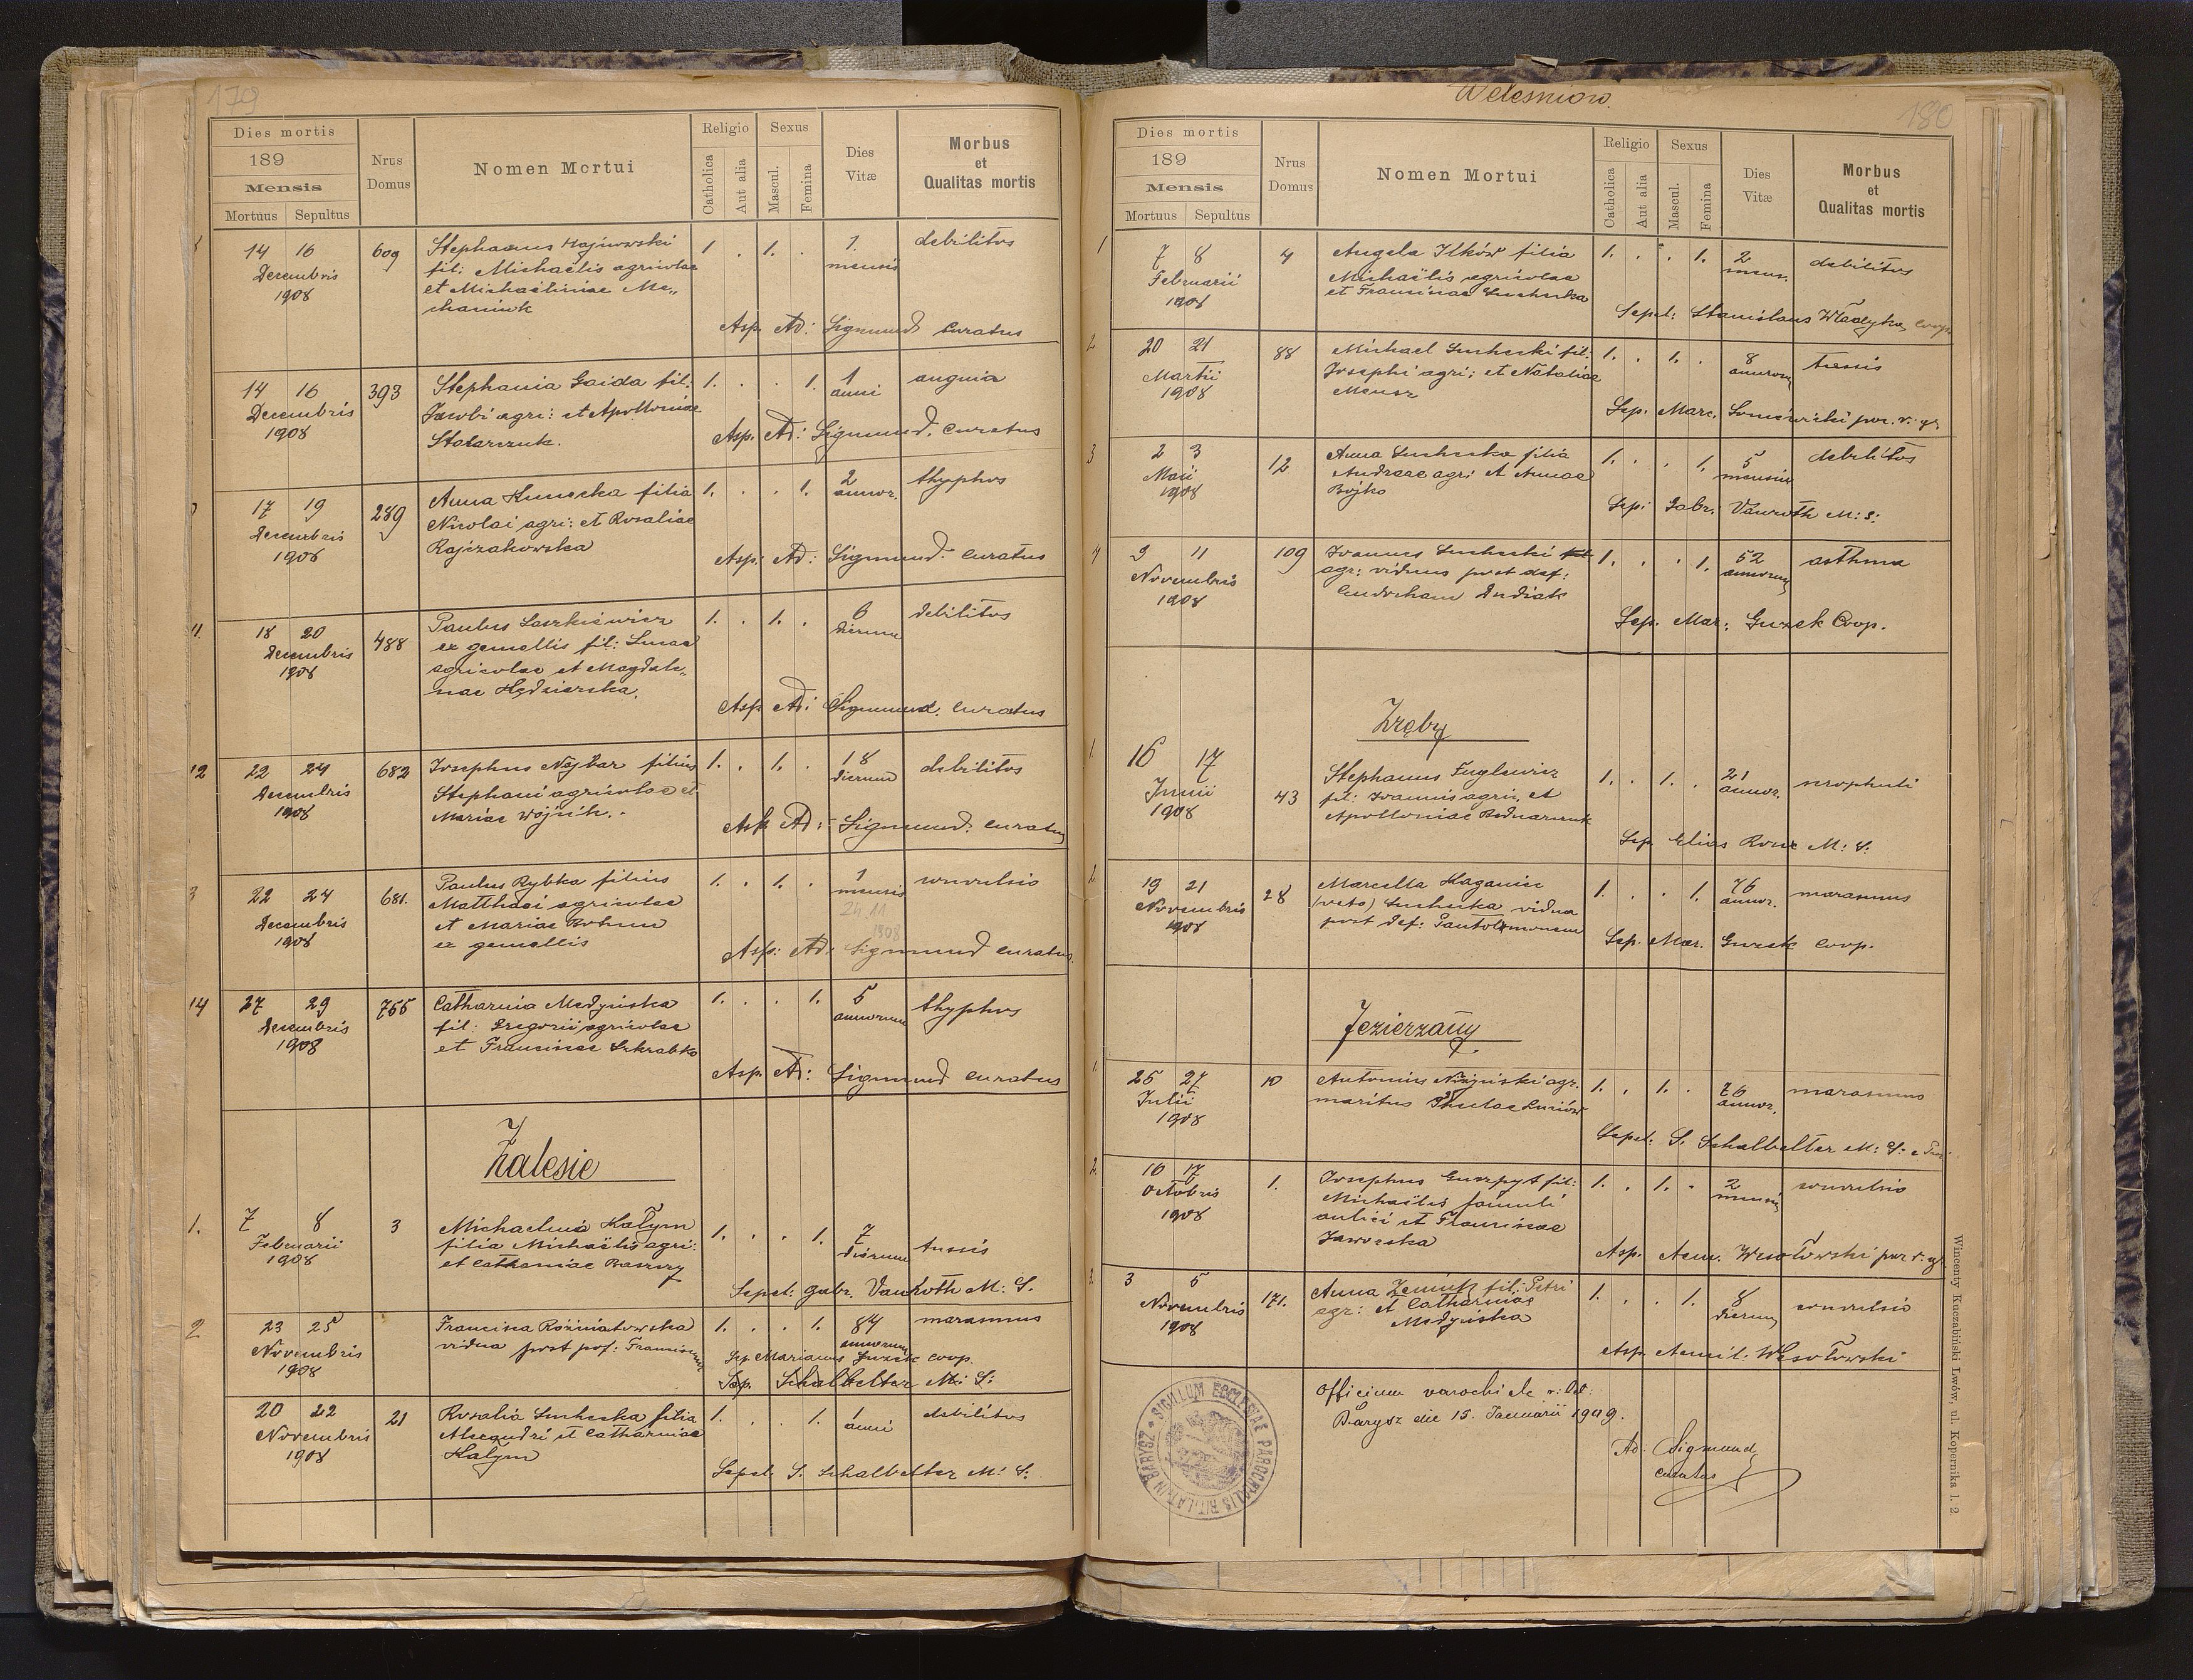 179
Dies mortis
189
Mensis
Mortuus Sepultus
Nrus Domus
Nomen Mortui
Religio
Catholica
Aut alia
Sexus
Mascul.
Femina
Dies Vitæ
Morbus et Qualitas mortis
14 16 609 Stephanus Hajnowski 1 . 1. . 1. debilitas
Decembris fil: Michaëlis agricolae mensis
1908 et Michaëlinae Me„
chaniuk
Asp. Ad: Sigmund curatus
14 16 393 Stephania Gaida fil. 1. . . 1. 1 angina
Decembris Jacobi agri: et Apolloniae anni
1908 Stolarczuk.
Asp. Ad: Sigmund. curatus
17 19 289 Anna Kunecka filia 1. . . 1. 2 thyphus
Decembris Nicolai agri: et Rosaliae annor.
1908 Rajczakowska
Asp: Ad: Sigmund. curatus
11. 18 20 488 Paulus Laszkiewicz 1. . 1. . 6 debilitas
Decembris ex gemellis fil: Lucae dierum
1908 agricolae et Magdale„
nae Hędzierska.
Asp. Ad: Sigmund. curatus
12 22 24 682 Josephus Najbar filius 1. . 1. . 18 debilitas
Decembris Stephani agricolae et dierum
1908 Mariae Wójcik.
Asp. Ad: Sigmund: curatus
3 22 24 681. Paulus Rybka filius 1. . 1. . 1 convulsio
Decembris Matthaei agricolae mensis
1908 et Mariae 24.11
ex gemellis 1908
Asp: Ad: Sigmund curatus
14 27 29 755 Catharina Medyńska 1. . . 1. 5 thyphus
Decembris fil: Gregorii agricolae annorum
1908 et Franciscae Szkrabko
Asp. Ad: Sigmund curatus
Zalesie
1. 7 8 3 Michaelina Kałym 1. . . 1. 7 tussis
Februarii filia Michaëlis agri: dierum
1908 et Catharinae Baszczy
Sepel: Gabr. Vanroth M: S.
2 23 25 Francisca Rożniatowska 1. . . 1. 84 marasmus
Novembris vidua post def. Franciscum annorum
1908 Sep. Marianus Guzek coop.
Sep. Schalbelter M: S:
20 22 21 Rosalia Suchecka filia 1. . . 1. 1 debilitas
Novembris Alexandri et Catharinae anni
1908 Kałym
Sepel. S. Schalbelter M: S:
Weleśniów.
180
Dies mortis
189
Mensis
Mortuus Sepultus
Nrus Domus
Nomen Mortui
Religio
Catholica
Aut alia
Sexus
Mascul.
Femina
Dies Vitæ
Morbus et Qualitas mortis
1 7 8 4 Angela Ilków filia 1. . . 1. 2 debilitas
Februarii Michaëlis agricolae mens.
1908 et Franciscae Suchecka
Sepel: Stanislaus Władyka coop.
2 20 21 88 Michael Suchecki fil. 1. . 1. . 8 tussis
Martii Josephi agri: et Nataliae annorum
1908 Mensz
Sep. Marc. par. r. gr.
3 2 3 12 Anna Suchecka filia 1. . . 1. 5 debilitas
Maii Andreae agri et Annae mensium
1908 Bojko
Sep: Gabr. Vanroth M: S:
4 9 11 109 Joannes Suchecki 1. . . 1. 52 asthma
Novembris agr: viduus post def: annorum
1908 Eudociam Dudiak
Sep. Mar: Guzek Coop.
Zręby
1. 16 17 43 Stephanus Fuglewicz 1. . 1. . 21 scrophuli
Junii fil: Joannis agric. et annor.
1908 Apolloniae Bednarczuk
Sep. Elias M: S:
2. 19 21 28 Marcella Haganiec 1. . . 1. 76 marasmus
Novembris (voto) Suchecka vidua annor.
1908 post def: Pantolemonem
Sep. Mar. Guzek coop.
Jezierzany
1. 25 27 10 Antonius agr. 1. . 1. . 76 marasmus
Julii maritus Theclae annor.
1908
Sepel. S. Schalbelter M: S:
2. 16 17 1. Josephus fil: 1. . 1. . 2 convulsio
Octobris Michaëlis famuli mensis
1908 aulici et Franciscae
Jaworska
Asp. Aem. Wesołowski par r. gr
3. 3 5 171. Anna fil: Petri 1. . . 1. 8 convulsio
Novembris agr: et Catharinae dierum
1908 Medyńska
Asp. Aemil: Wesołowski
Officium parochiale r: lat:
Barysz die 15. Januarii 1909.
Ad. Sigmund
curatus
SIGILLUM ECCLESIAE PAROCHIALIS RIT. LAT. IN BARYSZ
Wincenty Kuczabiński Lwów, ul. Kopernika l. 2